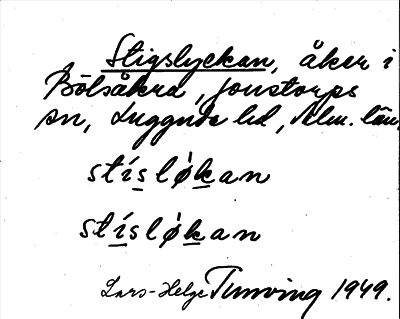 Stigslyckan, åker i
Bölsåkra, Jonstorps
sn, Luggude hd, Malm. län
stísløkan
stísløkan
Lars-Helge Tunving 1949.